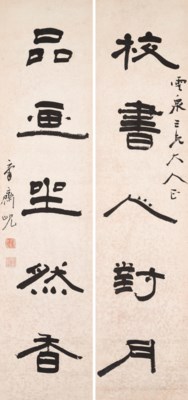 校書心對月
雲泉三兄大人正
品画坐然香